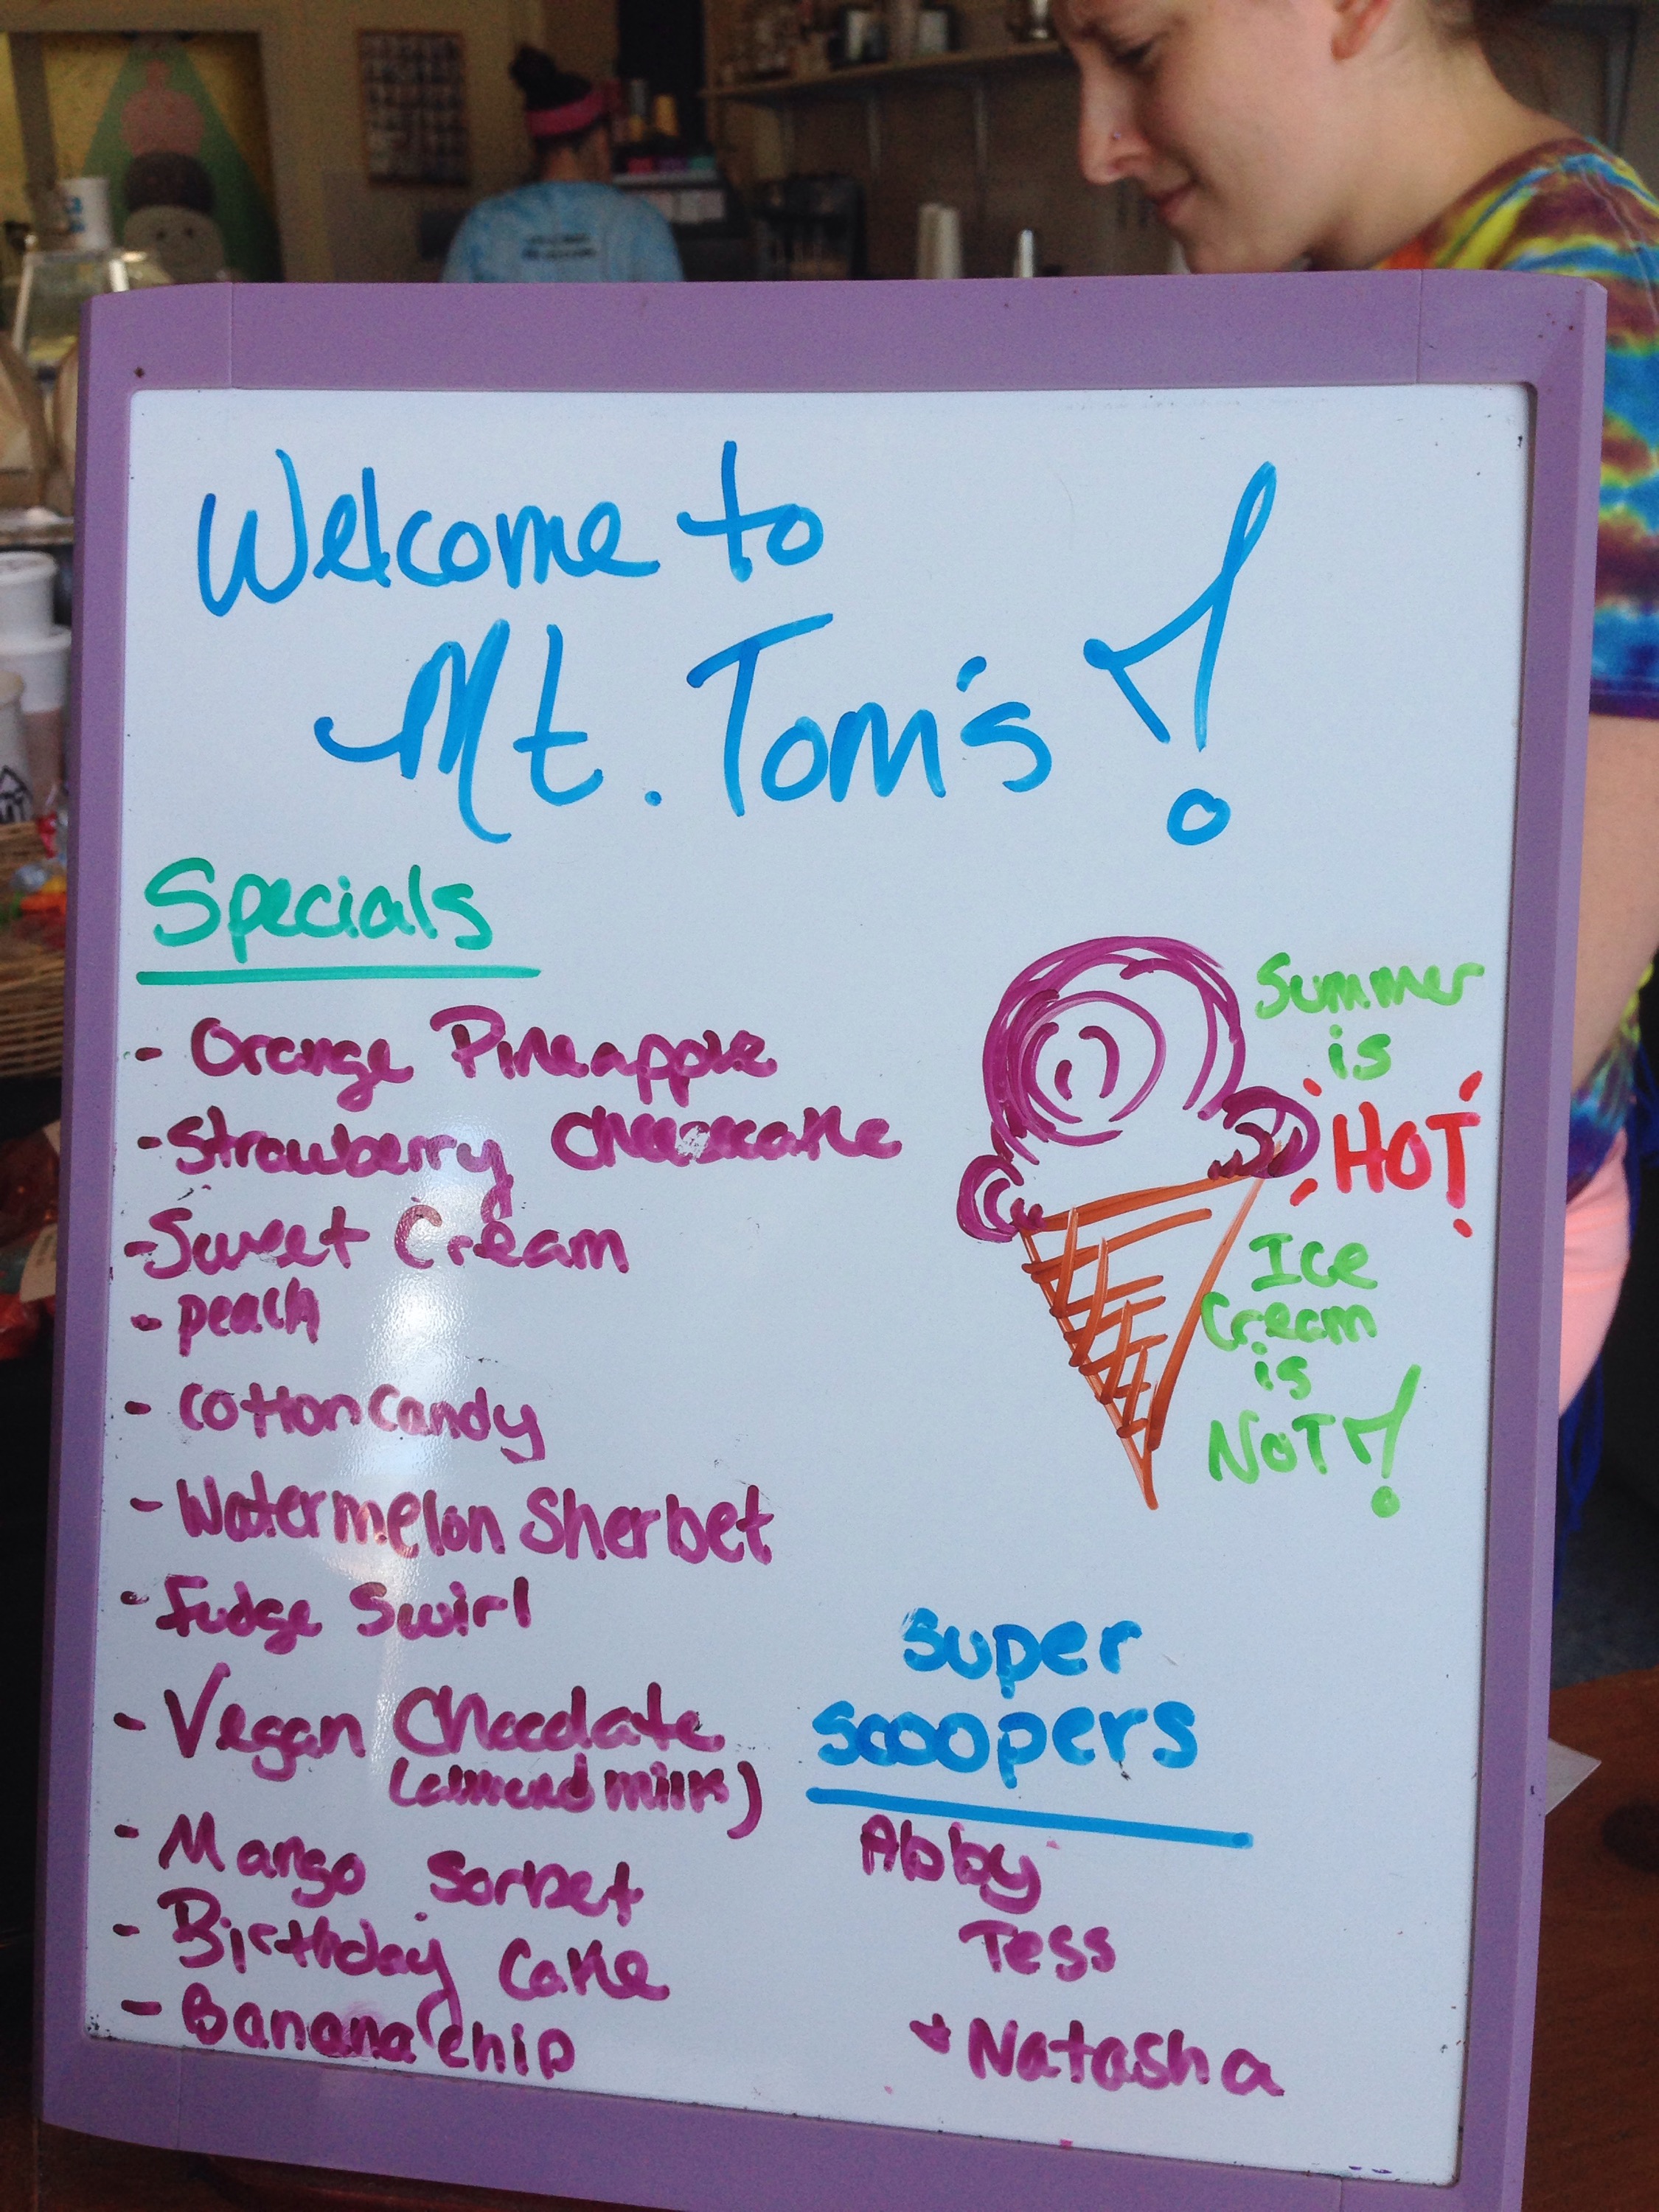 Welcome to
Mt. Tom's!
Specials
- Orange Pineapple
- Strawberry Cheesecake
- Sweet Cream
- peach
- Cotton Candy
- Watermelon Sherbet
- Fudge Swirl
- Vegan Chocolate
(almond milk)
- Mango Sorbet
- Birthday Cake
- Banana Chip
Summer
is
HOT
Ice
Cream
is
NOT!
Super
Scoopers
Abby
Tess
+ Natasha